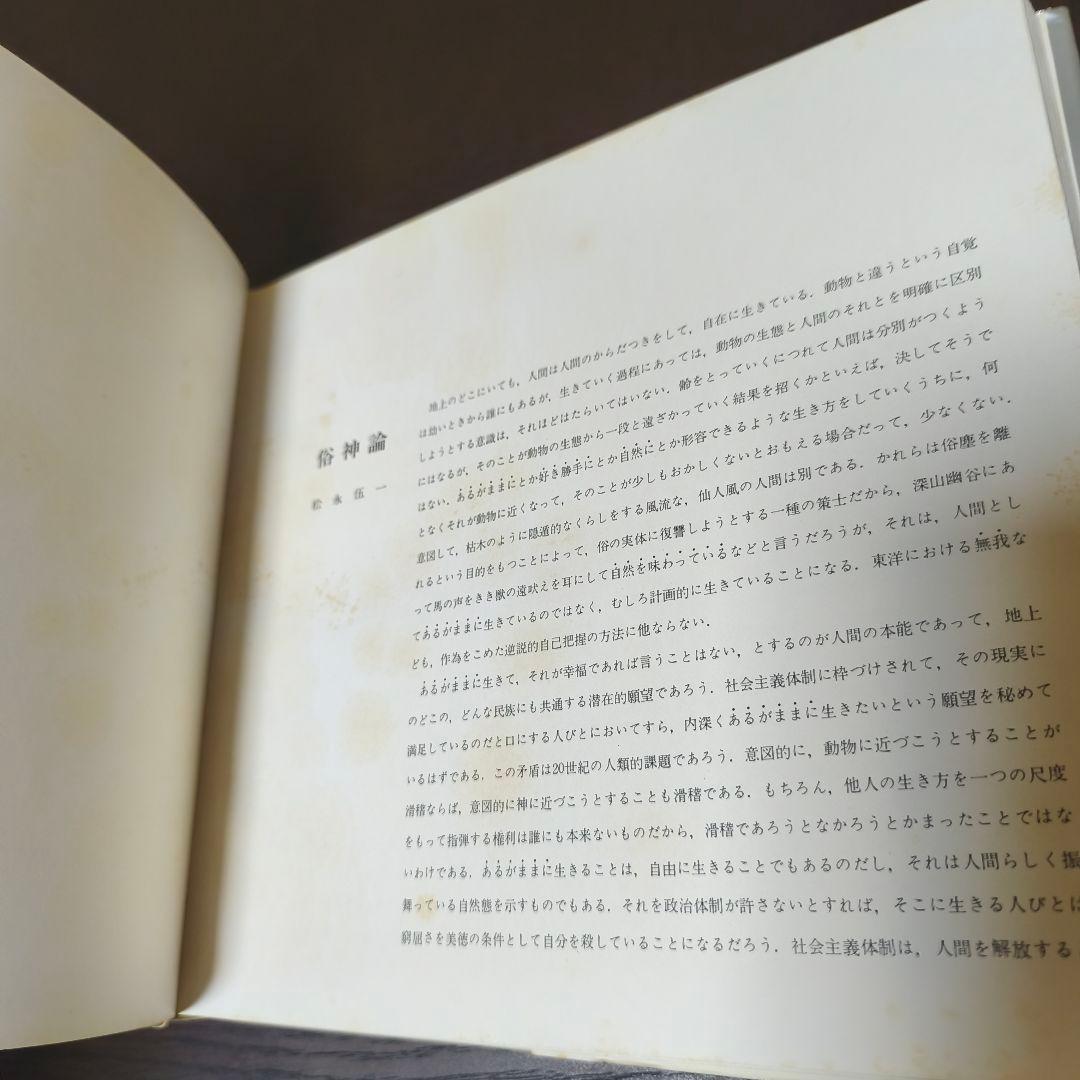 俗神論
松永伍一
地上のどこにいても，人間は人間のからだつきをして，自在に生きている．動物と違うという自覚
は幼いときから誰にもあるが，生きていく過程にあっては，動物の生態と人間のそれとを明確に区別
しようとする意識は，それほどはたらいてはいない．齢をとっていくにつれて人間は分別がつくよう
にはなるが，そのことが動物の生態から一段と遠ざかっていく結果を招くかといえば，決してそうで
はない．あるがままにとか好き勝手にとか自然にとか形容できるような生き方をしていくうちに，何
となくそれが動物に近くなって，そのことが少しもおかしくないとおもえる場合だって，少なくない．
意図して，枯木のように隠遁的なくらしをする風流な，仙人風の人間は別である．かれらは俗塵を離
れるという目的をもつことによって，俗の実体に復讐しようとする一種の策士だから，深山幽谷にあ
って馬の声をきき獣の遠吠えを耳にして自然を味わっているなどと言うだろうが，それは，人間とし
てあるがままに生きているのではなく，むしろ計画的に生きていることになる．東洋における無我な
ども，作為をこめた逆説的自己把握の方法に他ならない．
あるがままに生きて，それが幸福であれば言うことはない，とするのが人間の本能であって，地上
のどこの，どんな民族にも共通する潜在的願望であろう．社会主義体制に枠づけされて，その現実に
満足しているのだと口にする人びとにおいてすら，内深くあるがままに生きたいという願望を秘めて
いるはずである．この矛盾は20世紀の人類的課題であろう．意図的に，動物に近づこうとすることが
滑稽ならば，意図的に神に近づこうとすることも滑稽である．もちろん，他人の生き方を一つの尺度
をもって指弾する権利は誰にも本来ないものだから，滑稽であろうとなかろうとかまったことではな
いわけである．あるがままに生きることは，自由に生きることでもあるのだし，それは人間らしく振
舞っている自然態を示すものでもある．それを政治体制が許さないとすれば，そこに生きる人びとは
窮屈さを美徳の条件として自分を殺していることになるだろう．社会主義体制は，人間を解放する